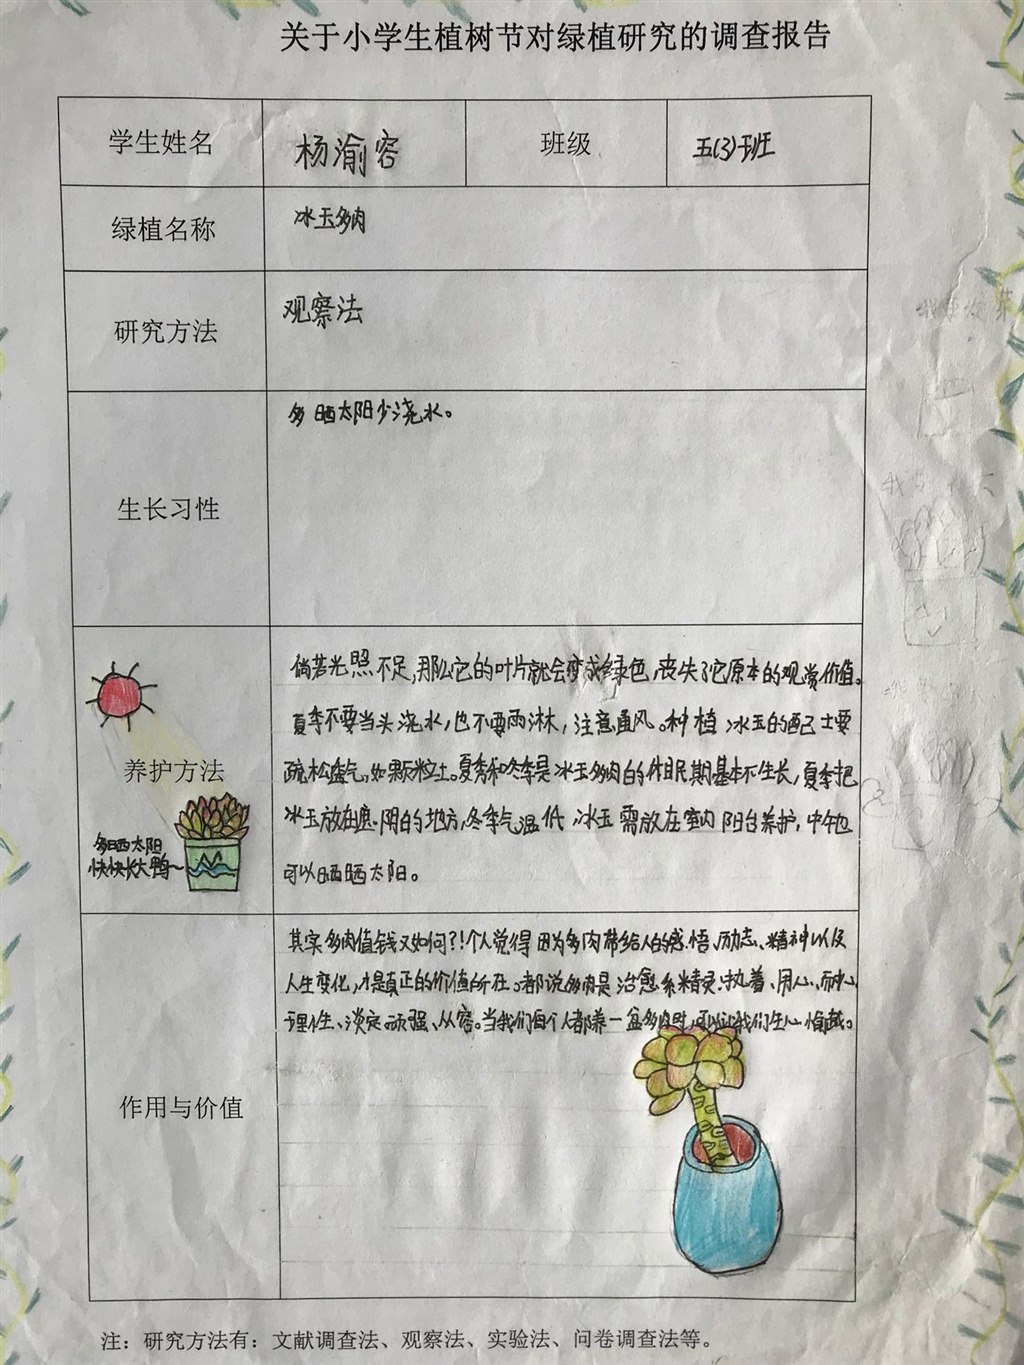 关于小学生植树节对绿植研究的调查报告
学生姓名 杨渝容 班级 五(3)班
绿植名称 冰玉多肉
研究方法 观察法
生长习性 多晒太阳少浇水。
养护方法
多晒太阳
快快长大鸭~
倘若光照不足,那么它的叶片就会变成绿色,丧失了它原本的观赏价值。
夏季不要当头浇水,也不要雨淋,注意通风。种植冰玉的配土要
疏松透气,如颗粒土。夏季和冬季是冰玉多肉的休眠期基本不生长,夏季把
冰玉放在遮阴的地方,冬季气温低冰玉需放在室内阳台养护,中午也
可以晒晒太阳。
作用与价值
其实多肉值钱又如何?!个人觉得因为多肉带给人的感悟、励志、精神以及
人生变化,才是真正的价值所在。都说多肉是治愈系精灵:执着、用心、耐心
理性、淡定、顽强、从容。当我们每个人都养一盆多肉时,可以让我们生心愉
注：研究方法有：文献调查法、观察法、实验法、问卷调查法等。